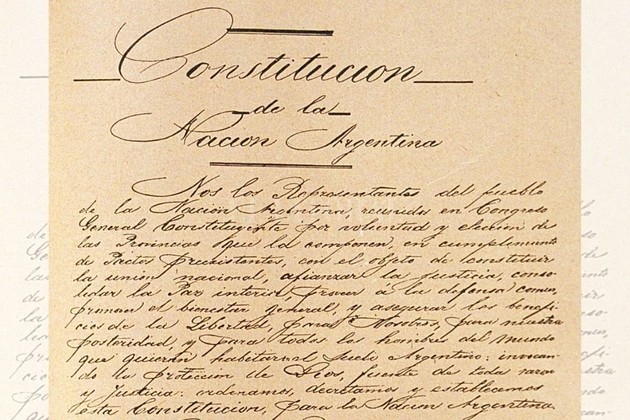 Constitucion
de la
Nacion Argentina
Nos los Representantes del pueblo
de la Nación Argentina, reunidos en Congreso
General Constituyente por voluntad y eleccion de
las Provincias que la componen, en cumplimiento
de Pactos preexistentes, con el objeto de constituir
la union nacional, afianzar la justicia, conso-
lidar la Paz interior, proveer á la defensa comun,
promover el bienestar general, y asegurar los benefi-
cios de la Libertad, para Nosotros, para nuestra
posteridad, y para todos los hombres del mundo
que quieran habitar el Suelo Argentino: invocan-
do la proteccion de Dios, fuente de toda razon
y Justicia: ordenamos, decretamos y establecemos
esta Constitucion, para la Nacion Argentina.